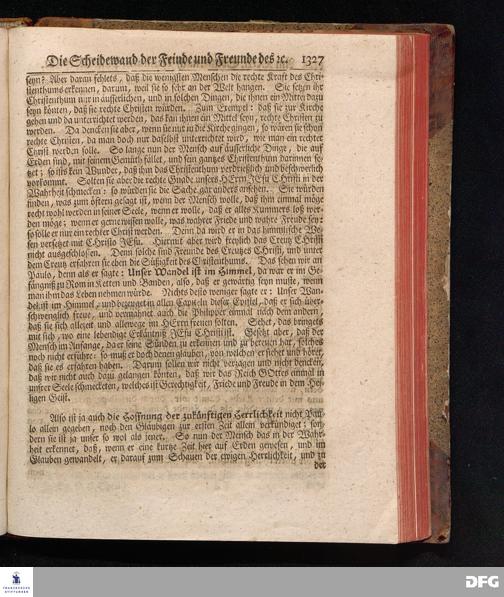 Die Scheidewand der Feinde und Freunde des ꝛc. 1327
seyn? Aber daran fehlets, daß die wenigsten Menschen die rechte Kraft des Chri-
stenthums erkennen, darum, weil sie so sehr an der Welt hangen. Sie setzen ihr
Christenthum nur in äusserlichen, und in solchen Dingen, die ihnen ein Mittel dazu
seyn könten, daß sie rechte Christen würden. Zum Exempel: daß sie zur Kirche
gehen und da unterrichtet werden, das kan ihnen ein Mittel seyn, rechte Christen zu
werden. Da dencken sie aber, wenn sie nur in die Kirche gingen, so wären sie schon
rechte Christen, da man doch nur daselbst unterrichtet wird, wie man ein rechter
Christ werden solle. So lange nun der Mensch auf äusserliche Dinge, die auf
Erden sind, mit seinem Gemüth fället, und sein gantzes Christenthum darinnen se-
tzet; so ists kein Wunder, daß ihm das Christenthum verdrießlich und beschwerlich
vorkommt. Solten sie aber die rechte Gnade unsers HErrn JEsu Christi in der
Wahrheit schmecken: so würden sie die Sache gar anders ansehen. Sie würden
finden, was zum öftern gesagt ist, wenn der Mensch wolle, daß ihm einmal möge
recht wohl werden in seiner Seele, wenn er wolle, daß er alles Kummers loß wer-
den möge; wenn er gerne wissen wolle, was wahrer Friede und wahre Freude sey:
so solle er nur ein rechter Christ werden. Denn da wird er in das himmlische We-
sen versetzet mit Christo JEsu. Hiermit aber wird freylich das Creutz Christi
nicht ausgeschlossen. Denn solche sind Freunde des Creutzes Christi, und unter
dem Creutz erfahren sie eben die Süßigkeit des Christenthums. Das sehen wir an
Paulo, denn als er sagte: Unser Wandel ist im Himmel, da war er im Ge-
fängniß zu Rom in Ketten und Banden, also, daß er gewärtig seyn muste, wenn
man ihm das Leben nehmen würde. Nichts desto weniger sagte er: Unser Wan-
del ist im Himmel, und bezeuget in allen Capiteln dieser Epistel, daß er sich über-
schwenglich freue, und vermahnet auch die Philipper einmal nach dem andern,
daß sie sich allezeit und allewege im HErrn freuen solten. Sehet, das bringets
mit sich, wo eine lebendige Erkäntniß JEsu Christi ist. Gesetzt aber, daß der
Mensch im Anfange, da er seine Sünden zu erkennen und zu bereuen hat, solches
noch nicht erführe: so muß er doch denen glauben, von welchen er siehet und höret,
daß sie es erfahren haben. Darum sollen wir nicht verzagen und nicht dencken,
daß wir nicht auch dazu gelangen könten, daß wir das Reich GOttes einmal in
unsrer Seele schmecketen, welches ist Gerechtigkeit, Friede und Freude in dem Hei-
ligen Geist.
Also ist ja auch die Hoffnung der zukünftigen Herrlichkeit nicht Pau-
lo allein gegeben, noch den Gläubigen zur ersten Zeit allein verkündiget: son-
dern sie ist ja unser so wol als jener. So nun der Mensch das in der Wahr-
heit erkennet, daß, wenn er eine kurtze Zeit hier auf Erden gewesen, und im
Glauben gewandelt, er darauf zum Schauen der ewigen Herrlichkeit, und zu
der
FRANCKESCHE STIFTUNGEN
DFG